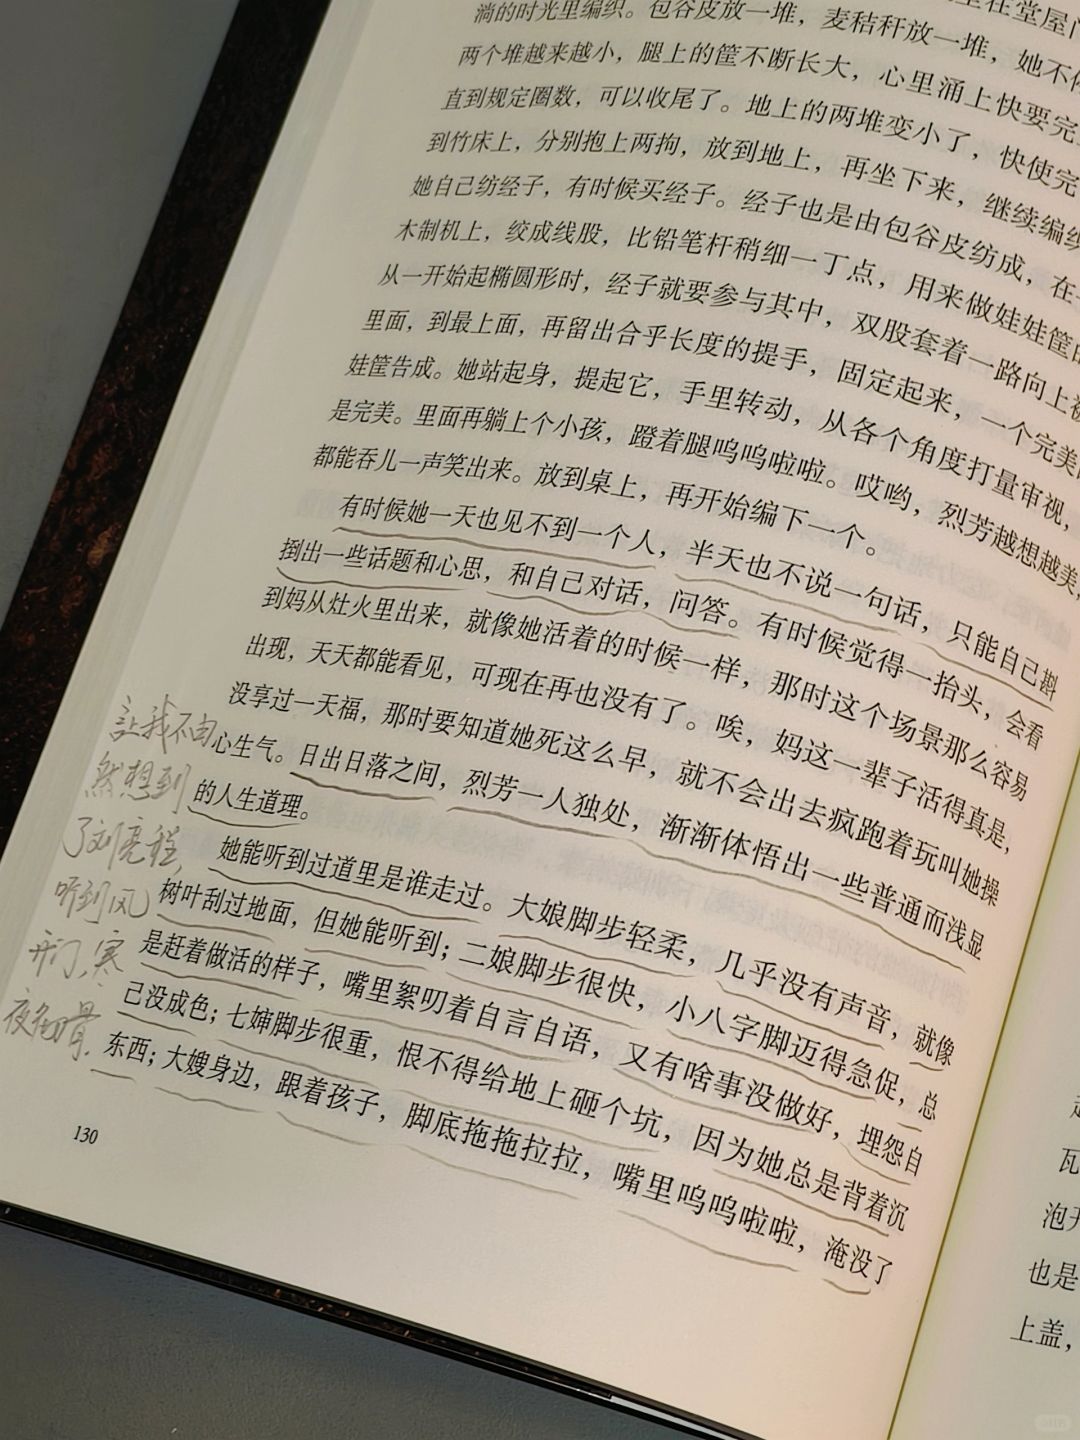 淌的时光里编织。包谷皮放一堆，麦秸秆放一堆，她不
两个堆越来越小，腿上的筐不断长大，心里涌上快要完
直到规定圈数，可以收尾了。地上的两堆变小了，快使完
到竹床上，分别抱上两拘，放到地上，再坐下来，继续编织
她自己纺经子，有时候买经子。经子也是由包谷皮纺成，在
木制机上，绞成线股，比铅笔杆稍细一丁点，用来做娃娃筐
从一开始起椭圆形时，经子就要参与其中，双股套着一路向上
里面，到最上面，再留出合乎长度的提手，固定起来，一个完美
娃筐告成。她站起身，提起它，手里转动，从各个角度打量审视，
是完美。里面再躺上个小孩，蹬着腿呜呜啦啦。哎哟，烈芳越想越美，
都能吞儿一声笑出来。放到桌上，再开始编下一个。
有时候她一天也见不到一个人，半天也不说一句话，只能自己斟
捯出一些话题和心思，和自己对话，问答。有时候觉得一抬头，会看
到妈从灶火里出来，就像她活着的时候一样，那时这个场景那么容易
出现，天天都能看见，可现在再也没有了。唉，妈这一辈子活得真是，
没享过一天福，那时要知道她死这么早，就不会出去疯跑着玩叫她操
心生气。日出日落之间，烈芳一人独处，渐渐体悟出一些普通而浅显
的人生道理。
她能听到过道里是谁走过。大娘脚步轻柔，几乎没有声音，就像
树叶刮过地面，但她能听到；二娘脚步很快，小八字脚迈得急促，总
是赶着做活的样子，嘴里絮叨着自言自语，又有啥事没做好，埋怨自
己没成色；七婶脚步很重，恨不得给地上砸个坑，因为她总是背着沉
东西；大嫂身边，跟着孩子，脚底拖拖拉拉，嘴里呜呜啦啦，淹没了
130
讓我不由
然想到
了刘亮程，
听到风
开门，寒
夜彻骨.
瓦
泡开
也是
上盖，